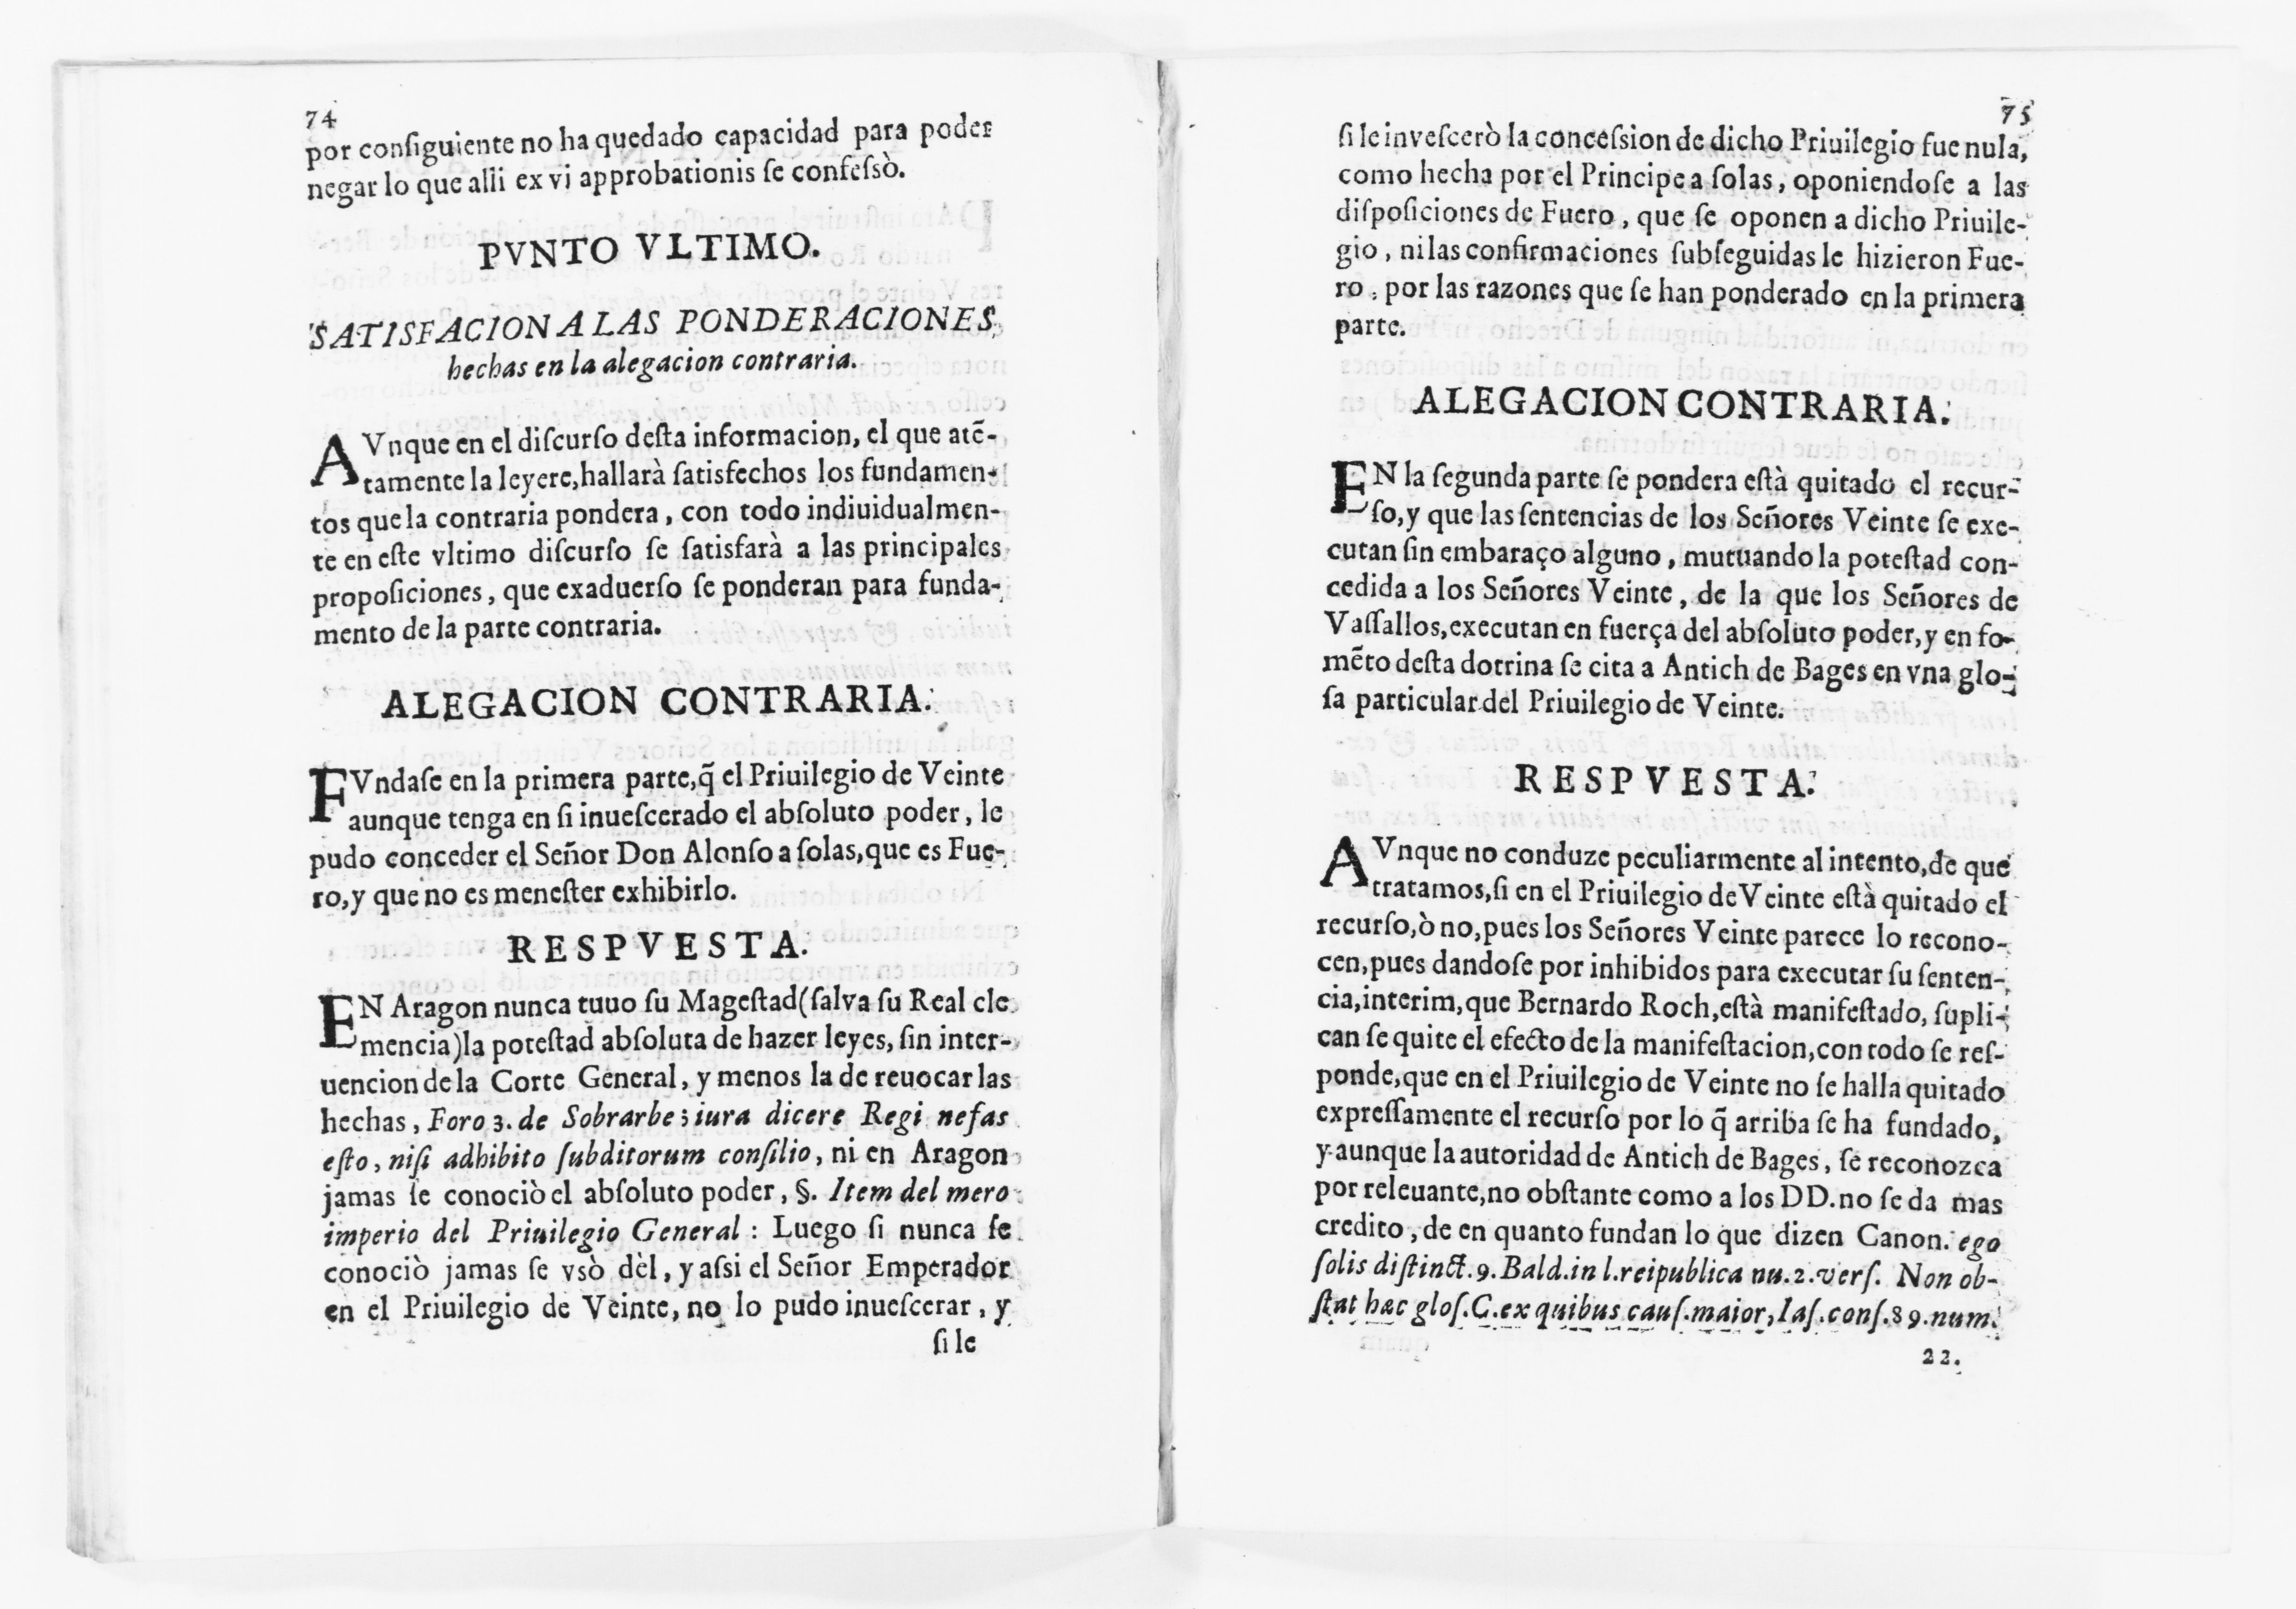 74
por consiguiente no ha quedado capacidad para poder
negar lo que alli ex vi approbationis se confessò.
PVNTO VLTIMO.
SATISFACION A LAS PONDERACIONES,
hechas en la alegacion contraria.
AVnque en el discurso desta informacion, el que atẽ-
tamente la leyere, hallarà satisfechos los fundamen-
tos que la contraria pondera, con todo indiuidualmen-
te en este vltimo discurso se satisfarà a las principales
proposiciones, que exaduerso se ponderan para funda-
mento de la parte contraria.
ALEGACION CONTRARIA.
FVndase en la primera parte, q̃ el Priuilegio de Veinte
aunque tenga en si inuescerado el absoluto poder, le
pudo conceder el Señor Don Alonso a solas, que es Fue-
ro, y que no es menester exhibirlo.
RESPVESTA.
EN Aragon nunca tuuo su Magestad (salva su Real cle
mencia) la potestad absoluta de hazer leyes, sin inter-
uencion de la Corte General, y menos la de reuocar las
hechas, Foro 3. de Sobrarbe; iura dicere Regi nefas
esto, nisi adhibito subditorum consilio, ni en Aragon
jamas se conociò el absoluto poder, §. Item del mero
imperio del Priuilegio General: Luego si nunca se
conociò jamas se vsò dèl, y assi el Señor Emperador
en el Priuilegio de Veinte, no lo pudo inuescerar, y
si le
75
si le invescerò la concession de dicho Priuilegio fue nula,
como hecha por el Principe a solas, oponiendose a las
disposiciones de Fuero, que se oponen a dicho Priuile-
gio, ni las confirmaciones subseguidas le hizieron Fue-
ro, por las razones que se han ponderado en la primera
parte.
ALEGACION CONTRARIA.
EN la segunda parte se pondera està quitado el recur-
so, y que las sentencias de los Señores Veinte se exe-
cutan sin embaraço alguno, mutuando la potestad con-
cedida a los Señores Veinte, de la que los Señores de
Vassallos, executan en fuerça del absoluto poder, y en fo-
mẽto desta dotrina se cita a Antich de Bages en vna glo-
sa particular del Priuilegio de Veinte.
RESPVESTA.
AVnque no conduze peculiarmente al intento, de que
tratamos, si en el Priuilegio de Veinte està quitado el
recurso, ò no, pues los Señores Veinte parece lo recono-
cen, pues dandose por inhibidos para executar su senten-
cia, interim, que Bernardo Roch, està manifestado, supli-
can se quite el efecto de la manifestacion, con todo se res-
ponde, que en el Priuilegio de Veinte no se halla quitado
expressamente el recurso por lo q̃ arriba se ha fundado,
y aunque la autoridad de Antich de Bages, se reconozca
por releuante, no obstante como a los DD. no se da mas
credito, de en quanto fundan lo que dizen Canon. ego
solis distinct. 9. Bald. in l. reipublica nu. 2. vers. Non ob-
stat hæc glos. C. ex quibus caus. maior, Ias. cons. 89. num.
22.